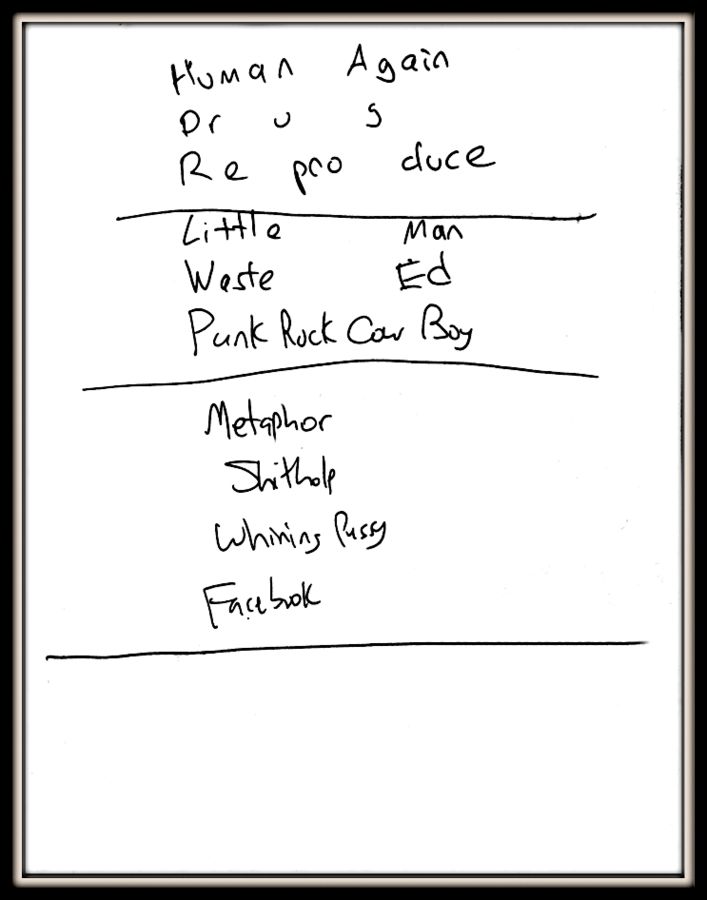 Human Again
Dr u s
Re pro duce
Little Man
Waste Ed
Punk Rock Cow Boy
Metaphor
Shithole
Whining Pussy
Facebook